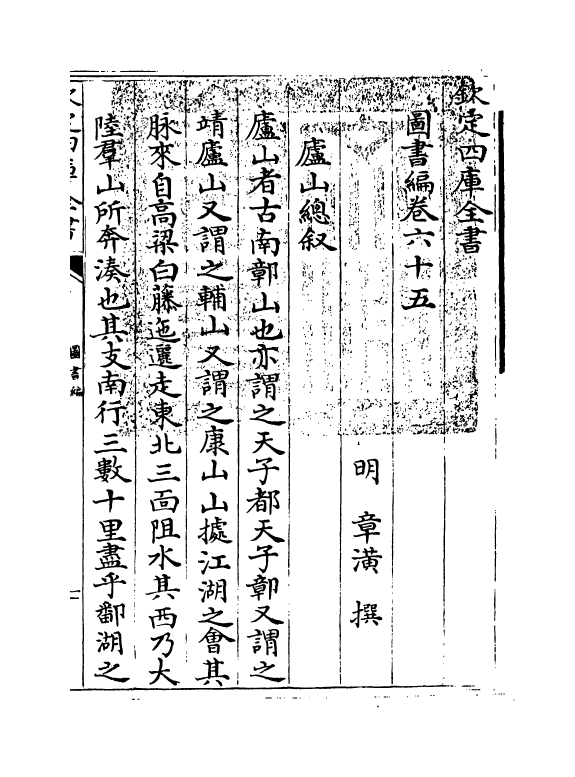 欽定四庫全書
圖書編卷六十五
明 章潢 撰
廬山總叙
廬山者古南鄣山也亦謂之天子都天子鄣又謂之
靖廬山又謂之輔山又謂之康山山據江湖之會其
脉來自高梁白藤迤邐走東北三面阻水其西乃大
陸羣山所奔湊也其支南行三數十里盡乎鄱湖之
圖書編